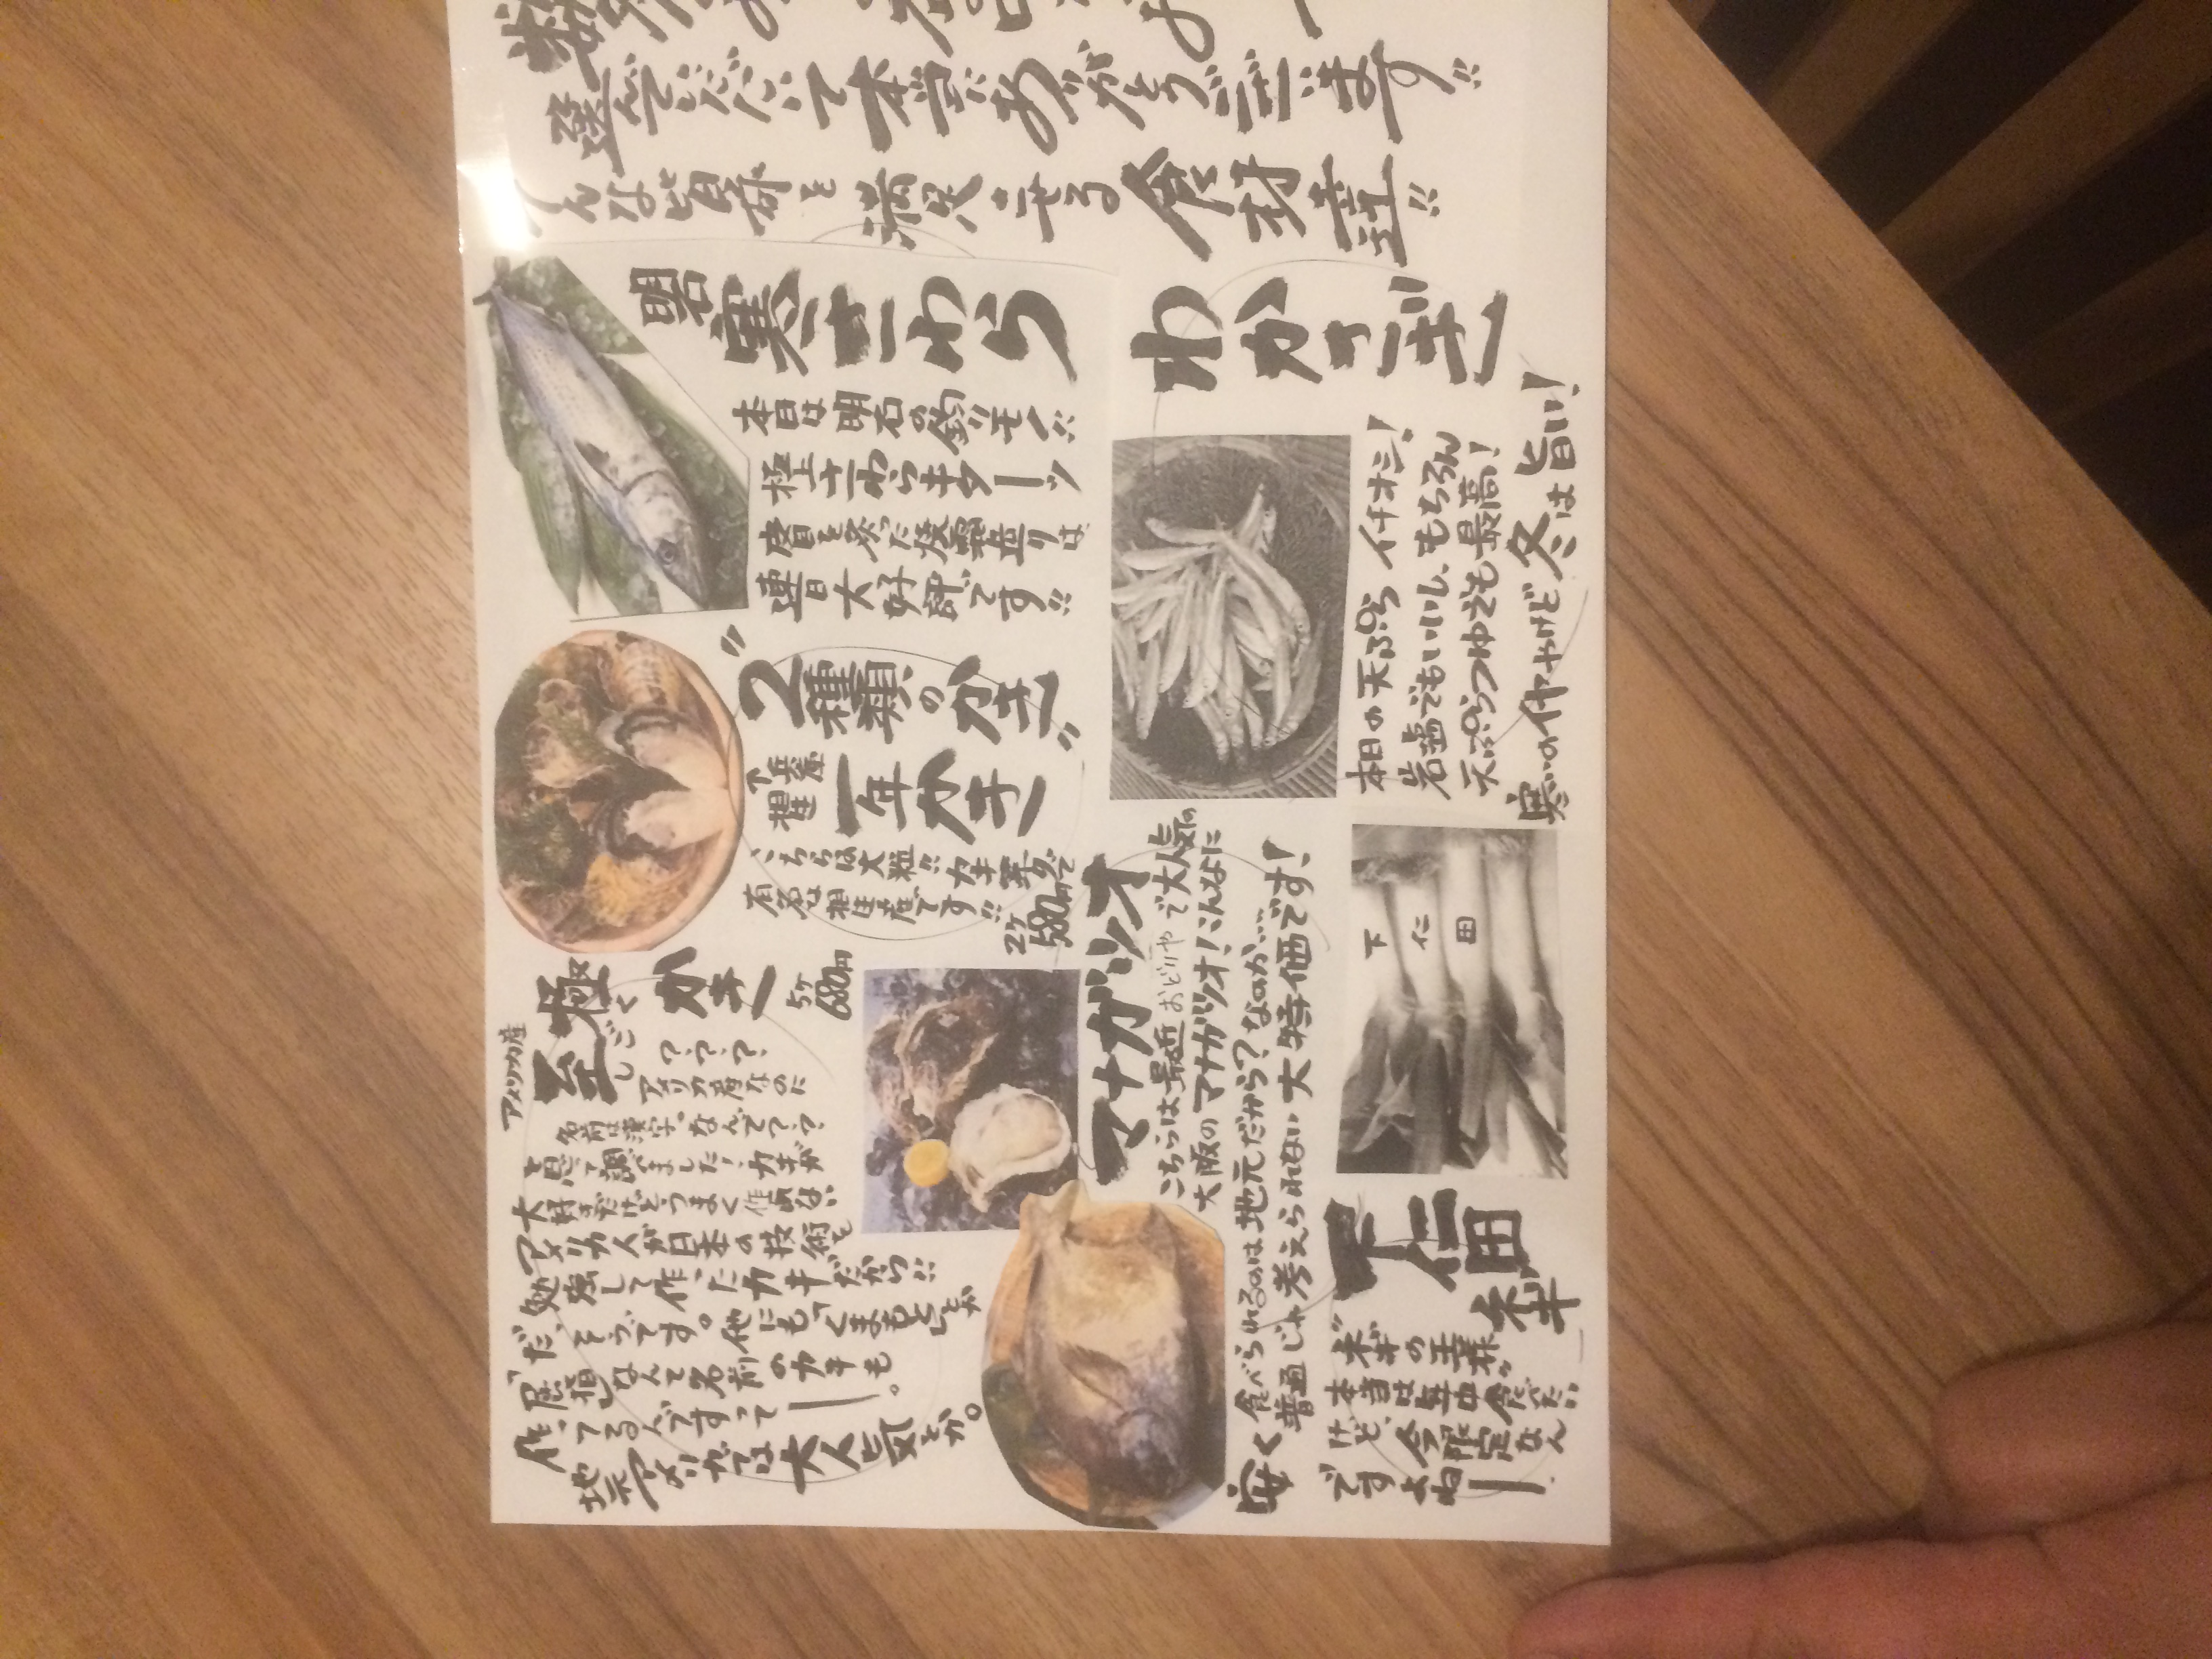 選んでいただいて本当にありがとうございます!!
そんな皆様を満足させる食材達!!
明石
寒さわら
本日は明石の釣りモノ!!
極上さわらキターッ
皮目を炙った焼霜造りは
連日大好評です!!
わかさぎ
本日の天ぷら イチオシ!
岩塩でもいいし、もちろん
天ぷらつゆでも最高!
寒いのイヤやけど冬は旨い!
"2種類のかき"
兵庫
相生
一年かき
こちらは大粒!!カキ筆ダで
有名な相生産です!!
2ヶ
580円
アメリカ産
至極かき
しごく
5ヶ
680円
？？？
アメリカ産なのに
名前は漢字。なんで？？
と思って調べました!カキが
大好きだけどうまく作れない
アメリカ人が日本の技術を
勉強して作ったカキだから!!
だ、そうです。他にも「くまもと」とか
「尾道」なんて名前のカキも
作ってるんですってー。
地元アメリカでは大人気とか。
マナガツオ
こちらは最近おどりやで大人気の
大阪のマナガツオ!こんなに
安く食べられるのは地元だから?なのか…
普通じゃ考えられない大特価です!
下仁田
下仁田
ネギ
"ネギの王様"
本当は年中食べたい
けど、今限定なん
ですよねー